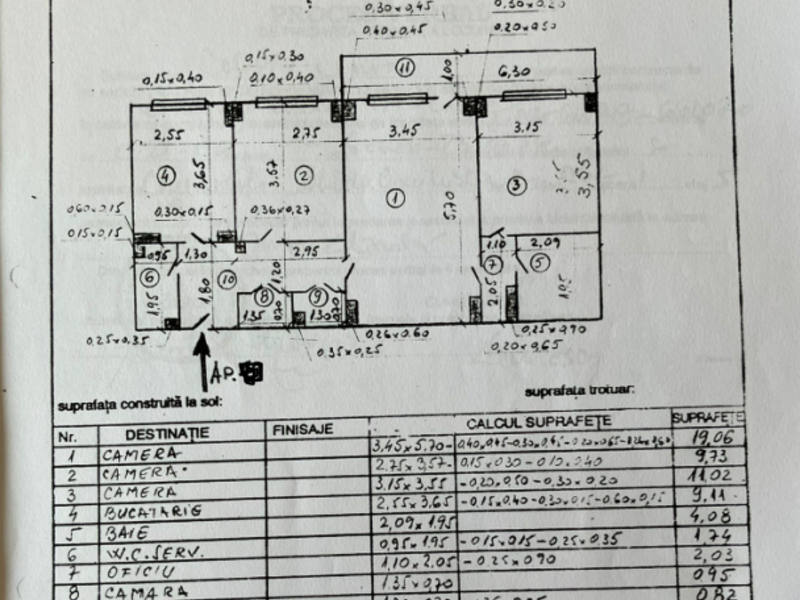 0.30x0.45
0.30x0.20
0.40x0.45
0.20x0.50
0,15x0.30
11
1,00
6,30
0,15x0,40
0,10x0,40
2,55
2,75
3.45
3.15
4
3,65
3.57
2
1
5,70
3
3,55
0,60x0.15
0.30x0.15
0,36x0,27
0,15x0,15
0,95
1,30
2,95
1.10
2,09
6
1,95
1,80
10
1.20
8
9
7
5
2,05
1.95
1.35
0,70
1.30
0,70
0,25x0.35
0,35x0,25
0,26x0.60
0,25x0,90
0,20x0,65
AP.
suprafața construită la sol:
suprafața trotuar:
Nr. DESTINAȚIE FINISAJE CALCUL SUPRAFEȚE SUPRAFEȚE
1 CAMERA 3,45x5.70- 0,40x0,45-0,30x0,45-0.20x0,65-0.26x0,60 19,06
2 CAMERA 2.75x3,57- 0,15x0.30-0.10x0.40 9,73
3 CAMERA 3.15x3.55 -0,20x0,50-0,30x0.20 11,02
4 BUCATARIE 2,55x3,65 -0,15x0.40-0.30x0.15-0.60x0,15 9,11
5 BAIE 2,09x1.95 4,08
6 W.C.SERV. 0,95x1.95 -0.15x0.15-0.25x0.35 1,74
7 OFICIU 1,10x2.05 -0.25x0.90 2,03
8 CAMARA 1.35x0,70 0,95
0,82